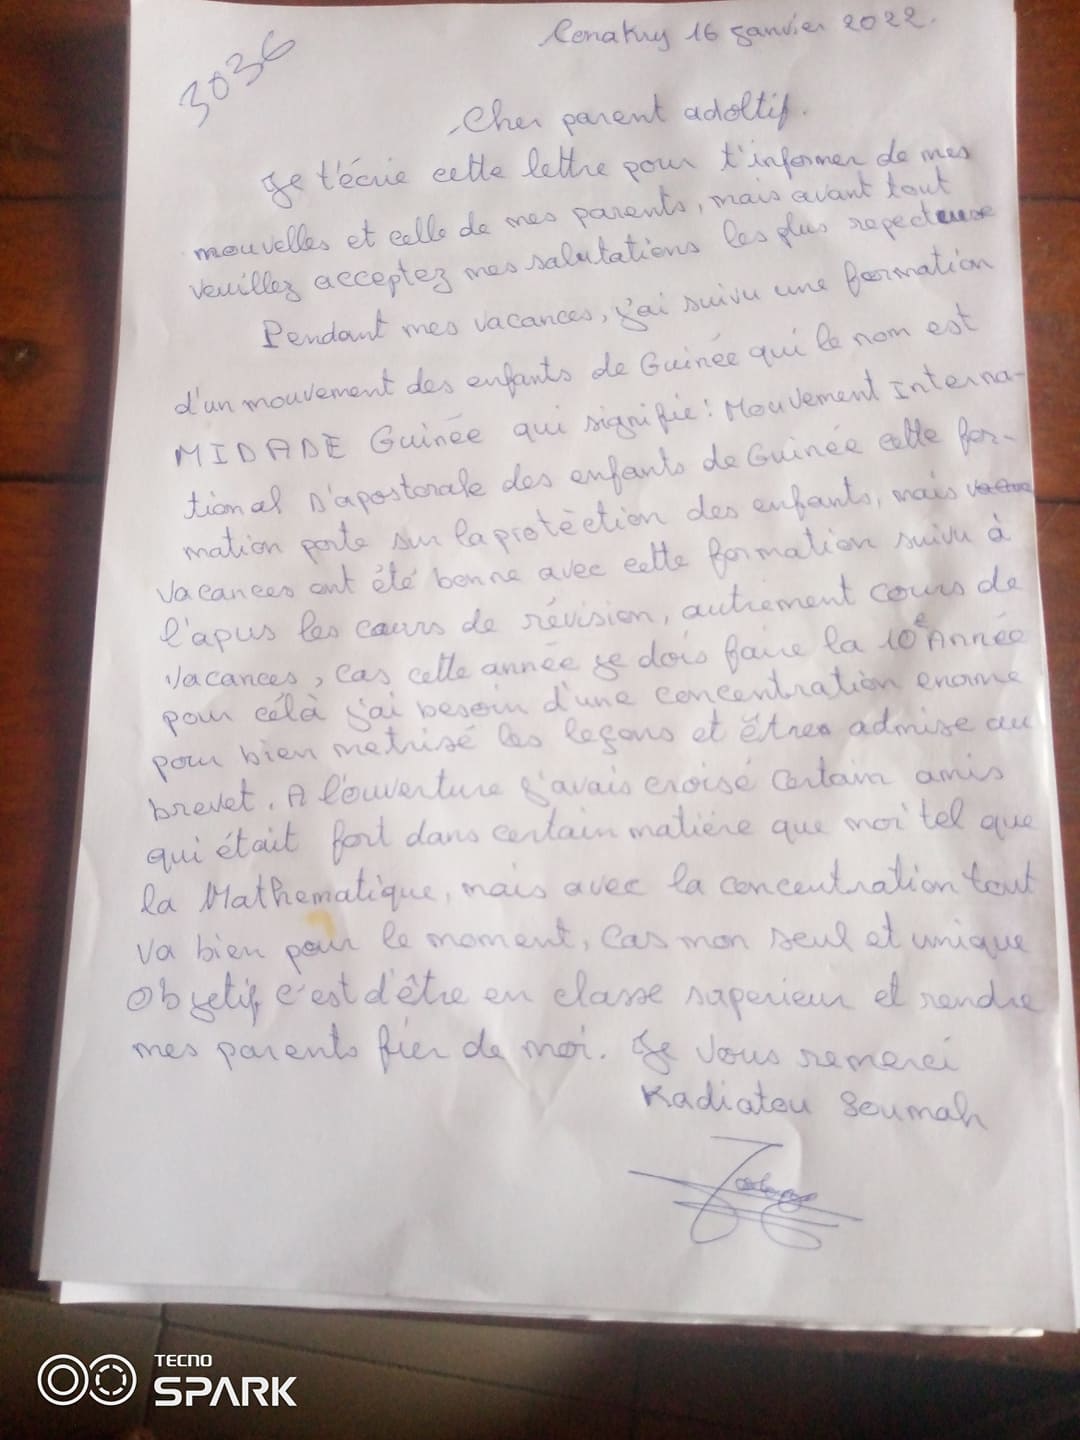 Conakry 16 Janvier 2022.
3036
Cher parent adoltif.
Je t'écrie cette lettre pour t'informer de mes
nouvelles et celle de mes parents, mais avant tout
veuillez acceptez mes salutations les plus repecteuse
Pendant mes vacances, j'ai suivu une formation
d'un mouvement des enfants de Guinée qui le nom est
MIDADE Guinée qui signifie : Mouvement Interna-
tional D'apostorale des enfants de Guinée cette for-
mation porte sur la protèction des enfants, mais
vacances ont été bonne avec cette formation suivu à
l'apus les cours de révision, autrement cours de
vacances, cas cette année je dois faire la 10e Année
pour célà j'ai besoin d'une concentration enorme
pour bien metrisé les leçons et êtres admise au
brevet. A l'ouverture j'avais croisé certain amis
qui était fort dans certain matière que moi tel que
la Mathematique, mais avec la concentration tout
va bien pour le moment, cas mon seul et unique
objetif c'est d'être en classe superieur et rendre
mes parents fier de moi. Je vous remerci
Kadiatou Soumah
TECNO
SPARK